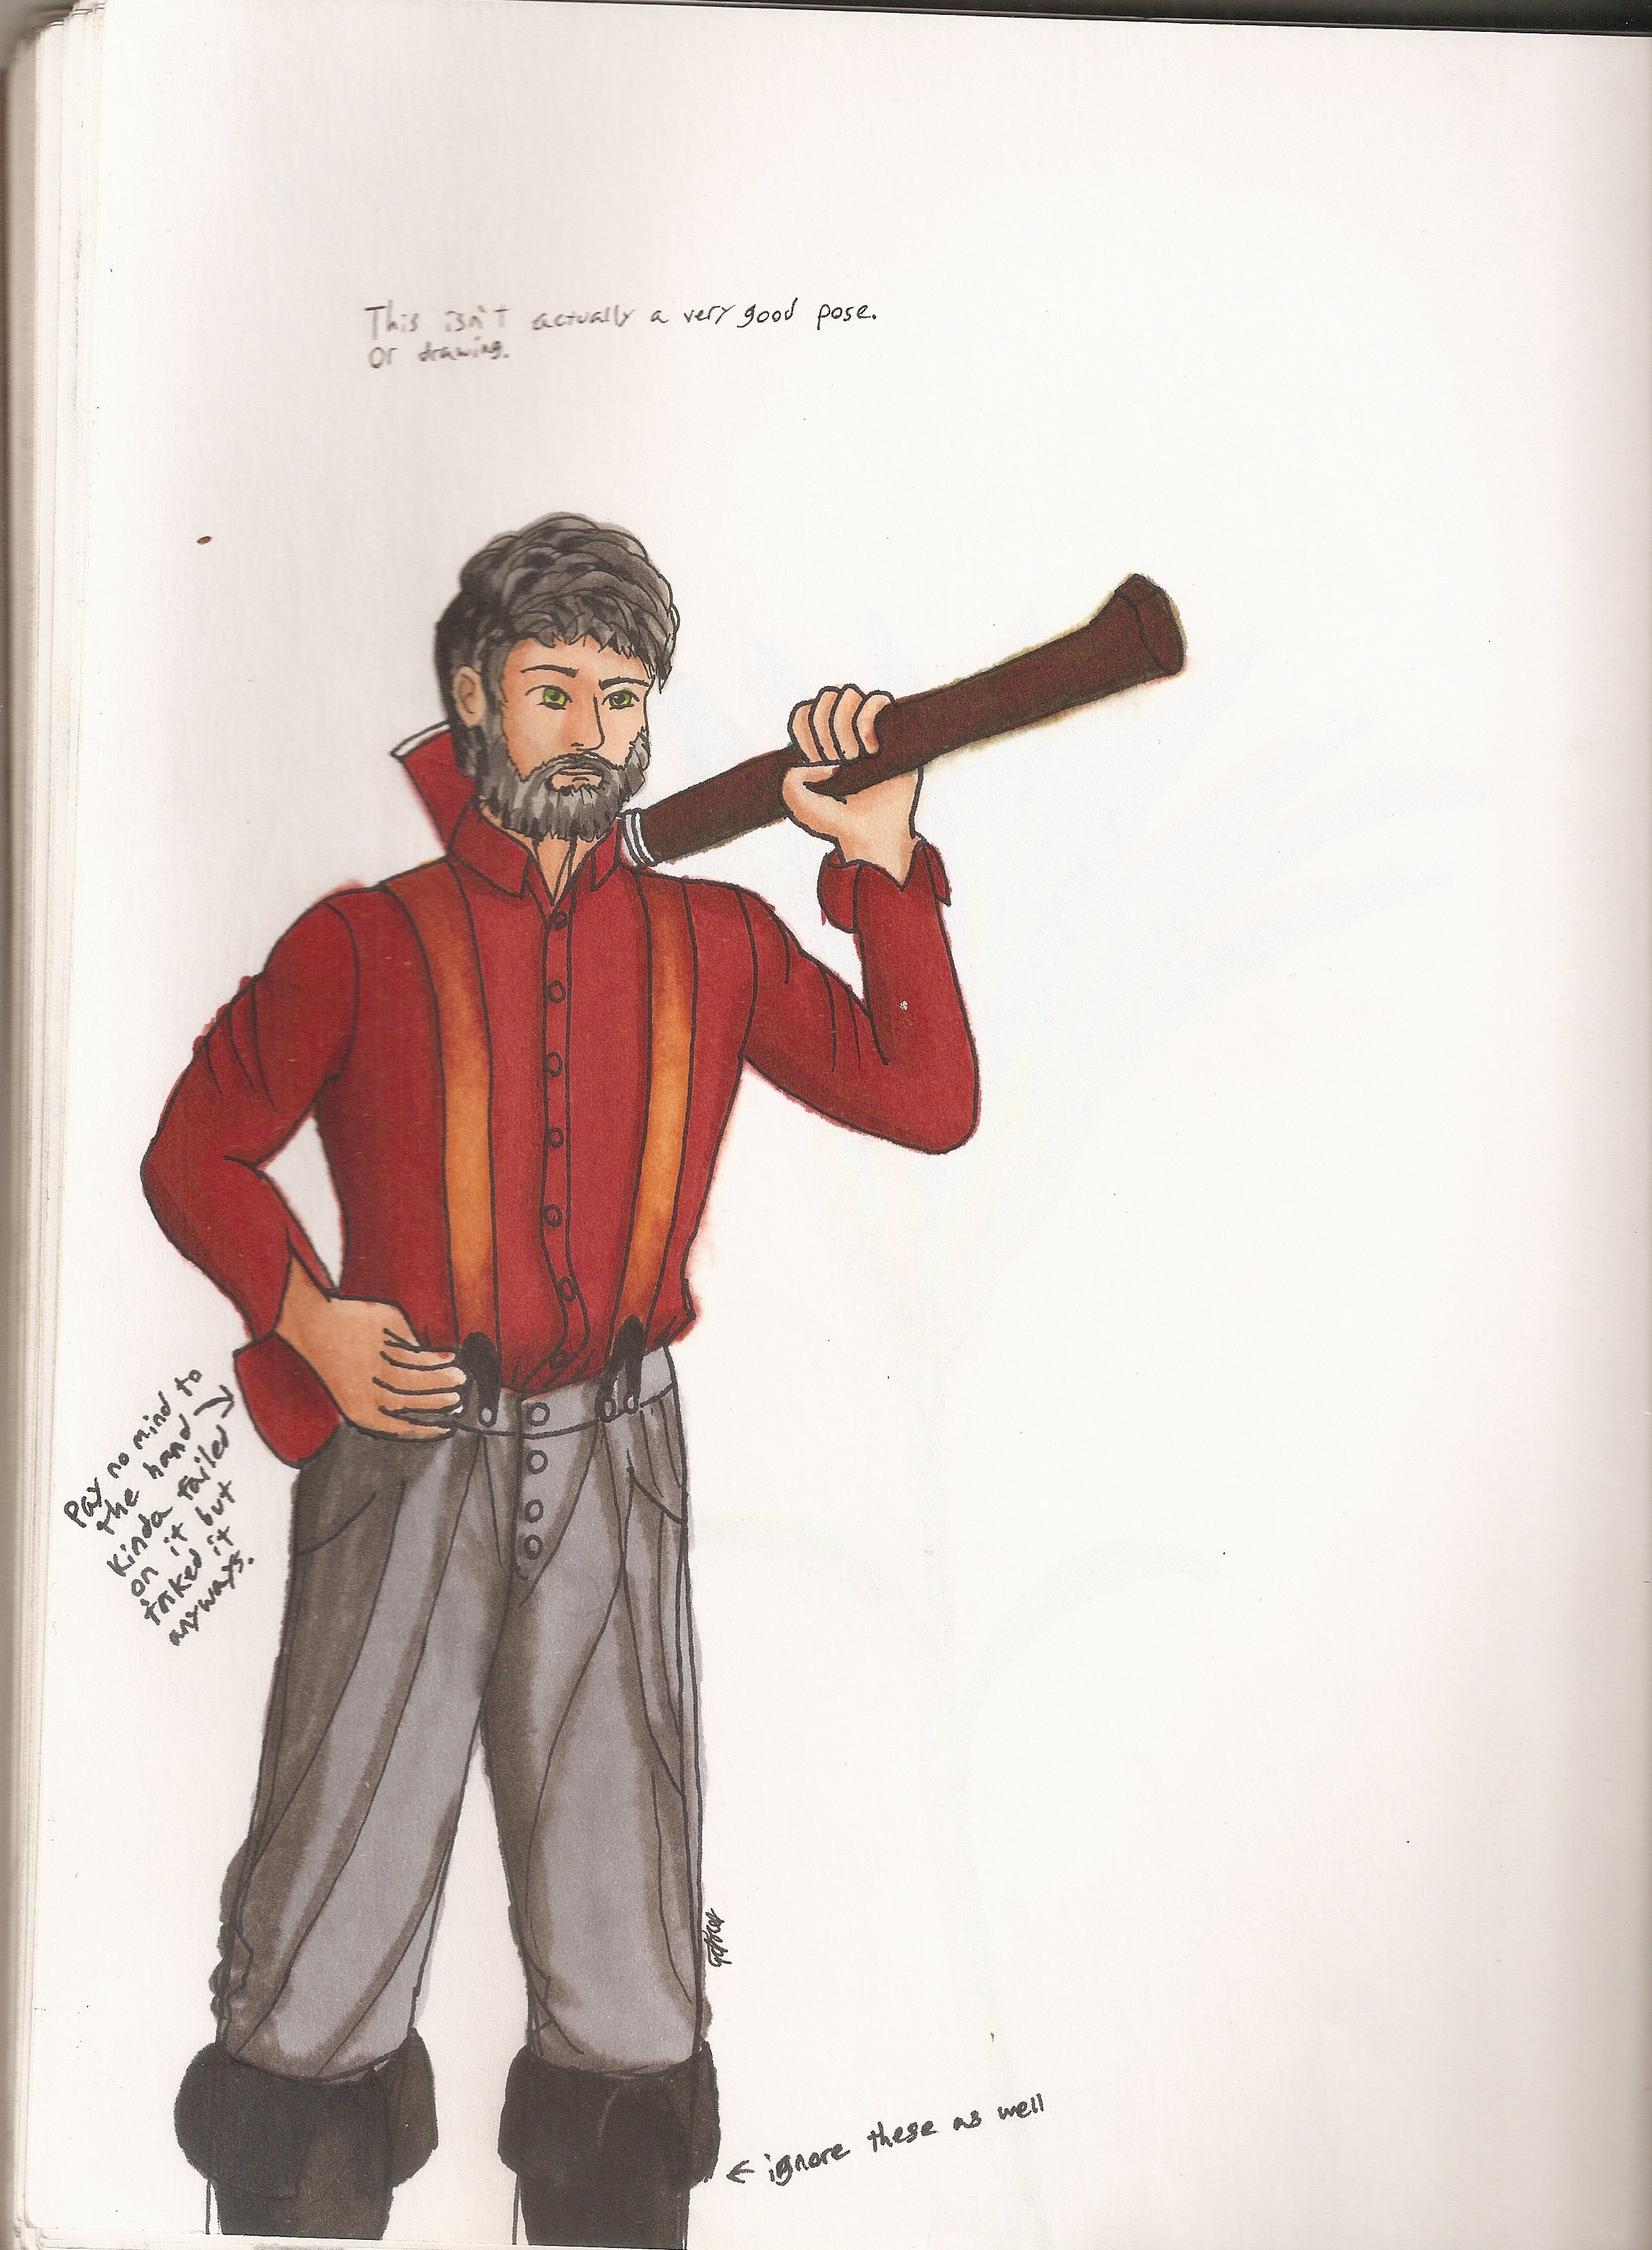 This isn't actually a very good pose.
Or drawing.
Pay no mind to
the hand
kinda failed
on it but
inked it
anyways.
ignore these as well